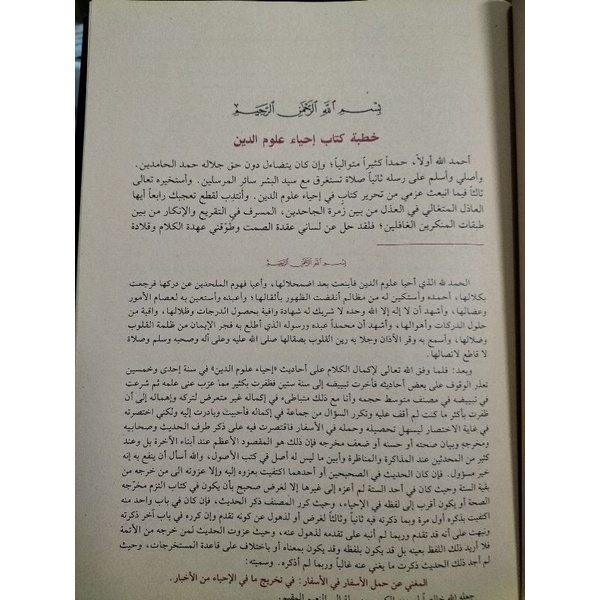 بسم الله الرحمن الرحيم
خطبة كتاب إحياء علوم الدين
أحمد الله أولاً، حمداً كثيراً متوالياً؛ وإن كان يتضاءل دون حق جلاله حمد الحامدين.
وأصلي وأسلم على رسله ثانياً صلاة تستغرق مع سيد البشر سائر المرسلين. وأستخيره تعالى
ثالثاً فيما انبعث عزمي من تحرير كتاب في إحياء علوم الدين. وأنتدب لقطع تعجبك رابعاً أيها
العاذل المتغالي في العذل من بين زمرة الجاحدين، المسرف في التقريع والإنكار من بين
طبقات المنكرين الغافلين؛ فلقد حل عن لساني عقدة الصمت وطوّقني عهدة الكلام وقلادة
بسم الله الرحمن الرحيم
الحمد لله الذي أحيا علوم الدين فأينعت بعد اضمحلالها، وأعيا فهوم الملحدين عن دركها فرجعت
بكلالها، أحمده وأستكين له من مظالم أنقضت الظهور بأثقالها؛ وأعبده وأستعين به لعصام الأمور
وعضالها، وأشهد أن لا إله إلا الله وحده لا شريك له شهادة وافية بحصول الدرجات وظلالها، واقية من
حلول الدركات وأهوالها، وأشهد أن محمداً عبده ورسوله الذي أطلع به فجر الإيمان من ظلمة القلوب
وضلالها، وأسمع به وقر الآذان وجلا به رين القلوب بصقالها صلى الله عليه وعلى آله وصحبه وسلم وصلاة
لا قاطع لاتصالها.
وبعد: فلما وفق الله تعالى لإكمال الكلام على أحاديث «إحياء علوم الدين» في سنة إحدى وخمسين
تعذر الوقوف على بعض أحاديثه فأخرت تبييضه إلى سنة ستين فظفرت بكثير مما عزب عنى علمه ثم شرعت
في تبييضه في مصنف متوسط حجمه وأنا مع ذلك متباطىء في إكماله غير متعرض لتركه وإهماله إلى أن
ظفرت بأكثر ما كنت لم أقف عليه وتكرر السؤال من جماعة في إكماله فأجبت وبادرت إليه ولكني اختصرته
في غاية الاختصار ليسهل تحصيله وحمله في الأسفار فاقتصرت فيه على ذكر طرف الحديث وصحابيه
ومخرجه وبيان صحته أو حسنه أو ضعف مخرجه فإن ذلك هو المقصود الأعظم عند أبناء الآخرة بل وعند
كثير من المحدثين عند المذاكرة والمناظرة وأبين ما ليس له أصل في كتب الأصول، والله أسأل أن ينفع به إنه
خير مسؤول. فإن كان الحديث في الصحيحين أو أحدهما اكتفيت بعزوه إليه وإلا عزوته الى من خرجه من
بقية الستة وحيث كان في أحد الستة لم أعزه إلى غيرها إلا لغرض صحيح بأن يكون في كتاب التزم مخرّجه
الصحة أو يكون أقرب إلى لفظه في الإحياء، وحيث كرر المصنف ذكر الحديث، فإن كان في باب واحد منه
اكتفيت بذكره أول مرة وبما ذكرته فيه ثانياً وثالثاً لغرض أو لذهول عن كونه تقدم وإن كرره في باب آخر ذكرته
ونبهت على أنه قد تقدم وربما لم أنبه على تقدمه لذهول عنه، وحيث عزوت الحديث لمن خرجه من الأئمة
فلا أريد ذلك اللفظ بعينه بل قد يكون بلفظه وقد يكون بمعناه أو باختلاف على قاعدة المستخرجات، وحيث
لم أجد ذلك الحديث ذكرت ما يغني عنه غالباً وربما لم أذكره. وسميته:
المغني عن حمل الأسفار في الأسفار: في تخريج ما في الإحياء من الأخبار.
جعله الله خالصاً